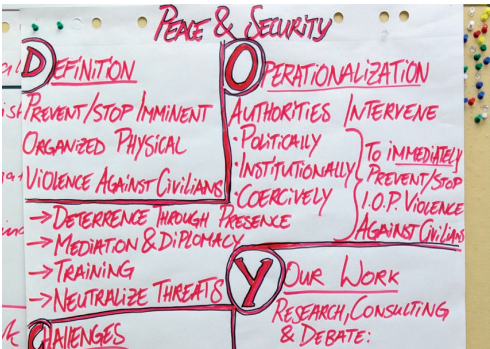 PEACE & SECURITY
DEFINITION
PREVENT/STOP IMMINENT
ORGANIZED PHYSICAL
VIOLENCE AGAINST CIVILIANS
→DETERRENCE THROUGH PRESENCE
→MEDIATION & DIPLOMACY
→TRAINING
→NEUTRALIZE THREATS
CHALLENGES
OPERATIONALIZATION
AUTHORITIES INTERVENE
·POLITICALLY
·INSTITUTIONALLY
·COERCIVELY
TO IMMEDIATELY
PREVENT/STOP
I.O.P. VIOLENCE
AGAINST CIVILIANS
YOUR WORK
RESEARCH, CONSULTING
& DEBATE: